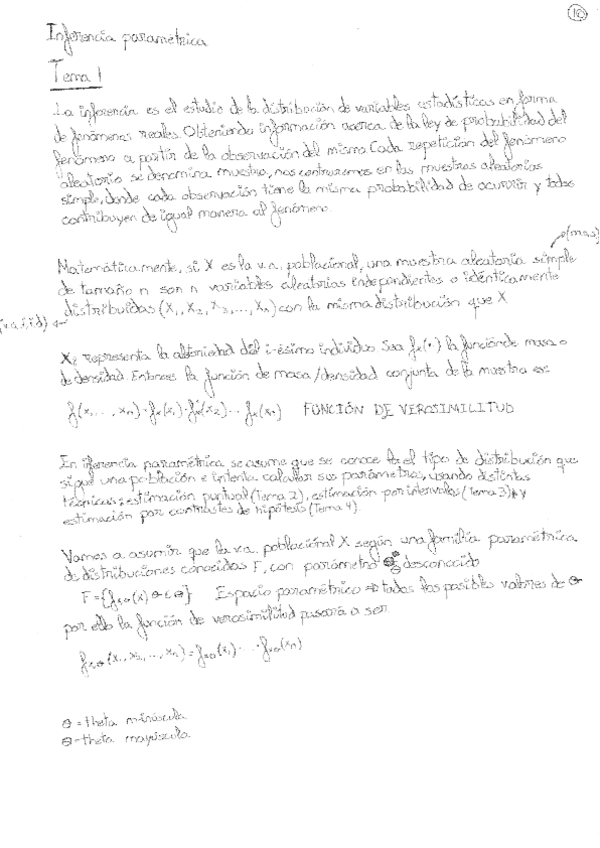 10
Inferencia paramétrica
Tema 1
La inferencia es el estudio de la distribución de variables estadísticas en forma
de fenómenos reales. Obteniendo información acerca de la ley de probabilidad del
fenómeno a partir de la observación del mismo. Cada repetición del fenómeno
aleatorio se denomina muestra, nos centraremos en las muestras aleatorias
simple, donde cada observación tiene la misma probabilidad de ocurrir y todas
contribuyen de igual manera al fenómeno.
(mas)
Matemáticamente, si X es la v.a. poblacional, una muestra aleatoria simple
de tamaño n son n variables aleatorias independientes e idénticamente
distribuidas (X₁, X₂, X₃, ..., Xₙ) con la misma distribución que X
(v.a.i.i.d)
Xᵢ representa la del i-ésimo individuo. Sea fₓ(·) la función de masa o
de densidad. Entonces la función de masa/densidad conjunta de la muestra es:
f(x₁, ..., xₙ) = fₓ(x₁) · fₓ(x₂) ... fₓ(xₙ) FUNCIÓN DE VEROSIMILITUD
En inferencia paramétrica se asume que se conoce el tipo de distribución que
sigue una población e intenta calcular sus parámetros, usando distintas
técnicas: estimación puntual (Tema 2), estimación por intervalos (Tema 3) y
estimación por contrastes de hipótesis (Tema 4).
Vamos a asumir que la v.a. poblacional X según una familia paramétrica
de distribuciones conocidas F, con parámetro θ desconocido
F = {fₓ,θ(x) θ ∈ Θ} Espacio paramétrico ⇒ todos los posibles valores de θ
por ello la función de verosimilitud pasará a ser
fₓ,θ(x₁, x₂, ..., xₙ) = fₓ,θ(x₁) · ... · fₓ,θ(xₙ)
θ = theta minúscula
Θ = theta mayúscula